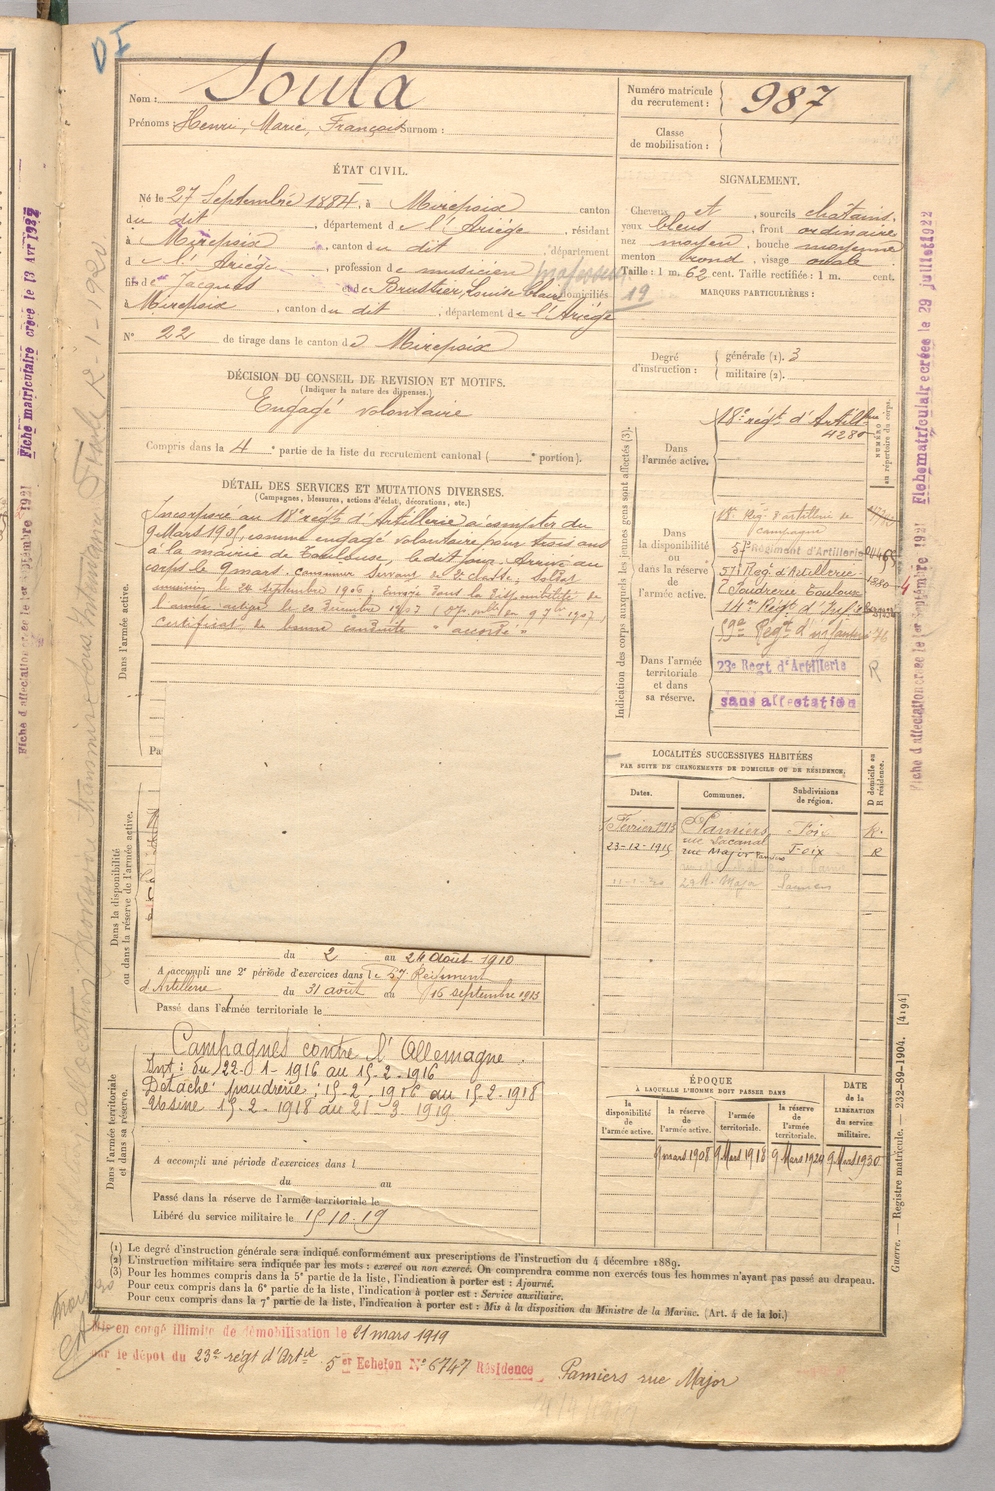 DI
Nom : Soula
Prénoms Henri, Marie, François Surnom :
Numéro matricule du recrutement : 987
Classe de mobilisation :
ÉTAT CIVIL.
Né le 27 Septembre 1884, à Mirepoix canton
du dit, département de l'Ariège, résidant
à Mirepoix, canton du dit, département
de l'Ariège, profession de musicien professeur
fils de Jacques et de Brustier, Louise Claire domiciliés
à Mirepoix, canton du dit, département de l'Ariège
19
N° 22 de tirage dans le canton de Mirepoix
SIGNALEMENT.
Cheveux et sourcils châtains.
yeux bleus, front ordinaire
nez moyen, bouche moyenne
menton rond, visage ovale
Taille : 1 m. 62 cent. Taille rectifiée : 1 m. cent.
MARQUES PARTICULIÈRES :
Degré d'instruction : générale (1). 3
militaire (2).
DÉCISION DU CONSEIL DE REVISION ET MOTIFS.
(Indiquer la nature des dispenses.)
Engagé volontaire
Compris dans la 4e partie de la liste du recrutement cantonal ( e portion).
DÉTAIL DES SERVICES ET MUTATIONS DIVERSES.
(Campagnes, blessures, actions d'éclat, décorations, etc.)
Dans l'armée active.
Incorporé au 18e régt d'Artillerie à compter du
9 Mars 1905, comme engagé volontaire pour trois ans
à la mairie de Toulouse, le dit jour. Arrivé au
corps le 9 mars. canonnier Servant de 2e classe, Soldat
musicien le 24 septembre 1906, envoyé dans la disponibilité de
l'armée active le 20 décembre 1907
certificat de bonne conduite "accordé"
Indication des corps auxquels les jeunes gens sont affectés (3).
NUMÉRO au répertoire du corps.
Dans l'armée active.
18e régt d'Artillerie
4280
Dans la disponibilité ou dans la réserve de l'armée active.
18e Rég. d'artillerie de
campagne
57e Régiment d'Artillerie
57e Rég. d'Artillerie
Poudrerie Toulouse
14e Régt d'Infie
59e Régt d'infanterie
Dans l'armée territoriale et dans sa réserve.
23e Regt d'Artillerie R
sans affectation
Dans la disponibilité ou dans la réserve de l'armée active.
du 2 au 24 août 1910
A accompli une 2e période d'exercices dans le 57 Régiment
d'Artillerie du 31 août au 16 septembre 1913
Passé dans l'armée territoriale le
LOCALITÉS SUCCESSIVES HABITÉES
PAR SUITE DE CHANGEMENTS DE DOMICILE OU DE RÉSIDENCE.
Dates. Communes. Subdivisions de région. D domicile ou R résidence.
Février 1913 Pamiers rue Lacanal Foix R.
23-12-1915 rue Major Pamiers Foix R
29 R. Major Pamiers
Dans l'armée territoriale et dans sa réserve.
Campagnes contre l'Allemagne.
Int : du 22-01-1916 au 15-2-1916
Détaché poudrerie : 15-2-1916 au 15-2-1918
Usine 15-2-1918 au 21-3-1919.
A accompli une période d'exercices dans l
du au
Passé dans la réserve de l'armée territoriale le
Libéré du service militaire le 15-10-19
ÉPOQUE
À LAQUELLE L'HOMME DOIT PASSER DANS
la disponibilité de l'armée active. la réserve de l'armée active. l'armée territoriale. la réserve de l'armée territoriale. DATE de la LIBÉRATION du service militaire.
9 mars 1908 9 Mars 1918 9 Mars 1924 9 Mars 1930
(1) Le degré d'instruction générale sera indiqué conformément aux prescriptions de l'instruction du 4 décembre 1889.
(2) L'instruction militaire sera indiquée par les mots : exercé ou non exercé. On comprendra comme non exercés tous les hommes n'ayant pas passé au drapeau.
(3) Pour les hommes compris dans la 5e partie de la liste, l'indication à porter est : Ajourné.
Pour ceux compris dans la 6e partie de la liste, l'indication à porter est : Service auxiliaire.
Pour ceux compris dans la 7e partie de la liste, l'indication à porter est : Mis à la disposition du Ministre de la Marine. (Art. 4 de la loi.)
Mis en congé illimité de démobilisation le 21 mars 1919
par le dépôt du 23e régt d'Artie 5er Echelon N° 6747 Résidence Pamiers rue Major
Guerre. — Registre matricule. — 232-89-1904. [4194]
Fiche matriculaire créée le 13 Avr 1922
Fiche d'affectation créée le 1er Septembre 1921
Fiche matriculaire créée le 29 juillet 1922
Fiche d'affectation créée le 1er Septembre 1921